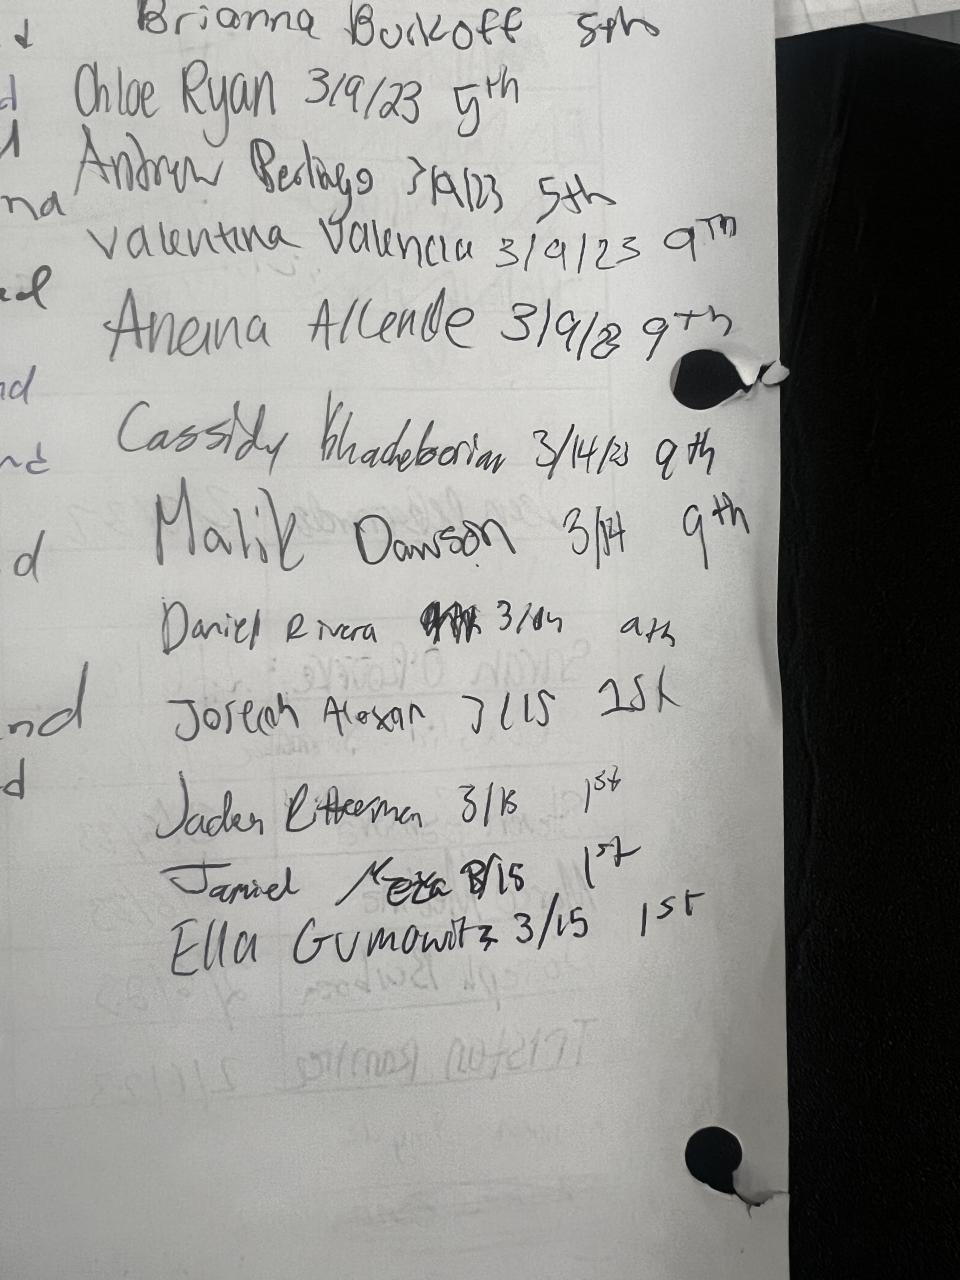 Brianna Burkoff 5th
Chloe Ryan 3/9/23 5th
Andrew 3/9/23 5th
Valentina Valencia 3/9/23 9th
Allende 3/9/23 9th
Cassidy 3/14/23 9th
Malik Dawson 3/14 9th
Daniel Rivera 3/14 9th
Joseph 3/15 1st
Jaden 3/15 1st
Meza 3/15 1st
Ella Gumowitz 3/15 1st